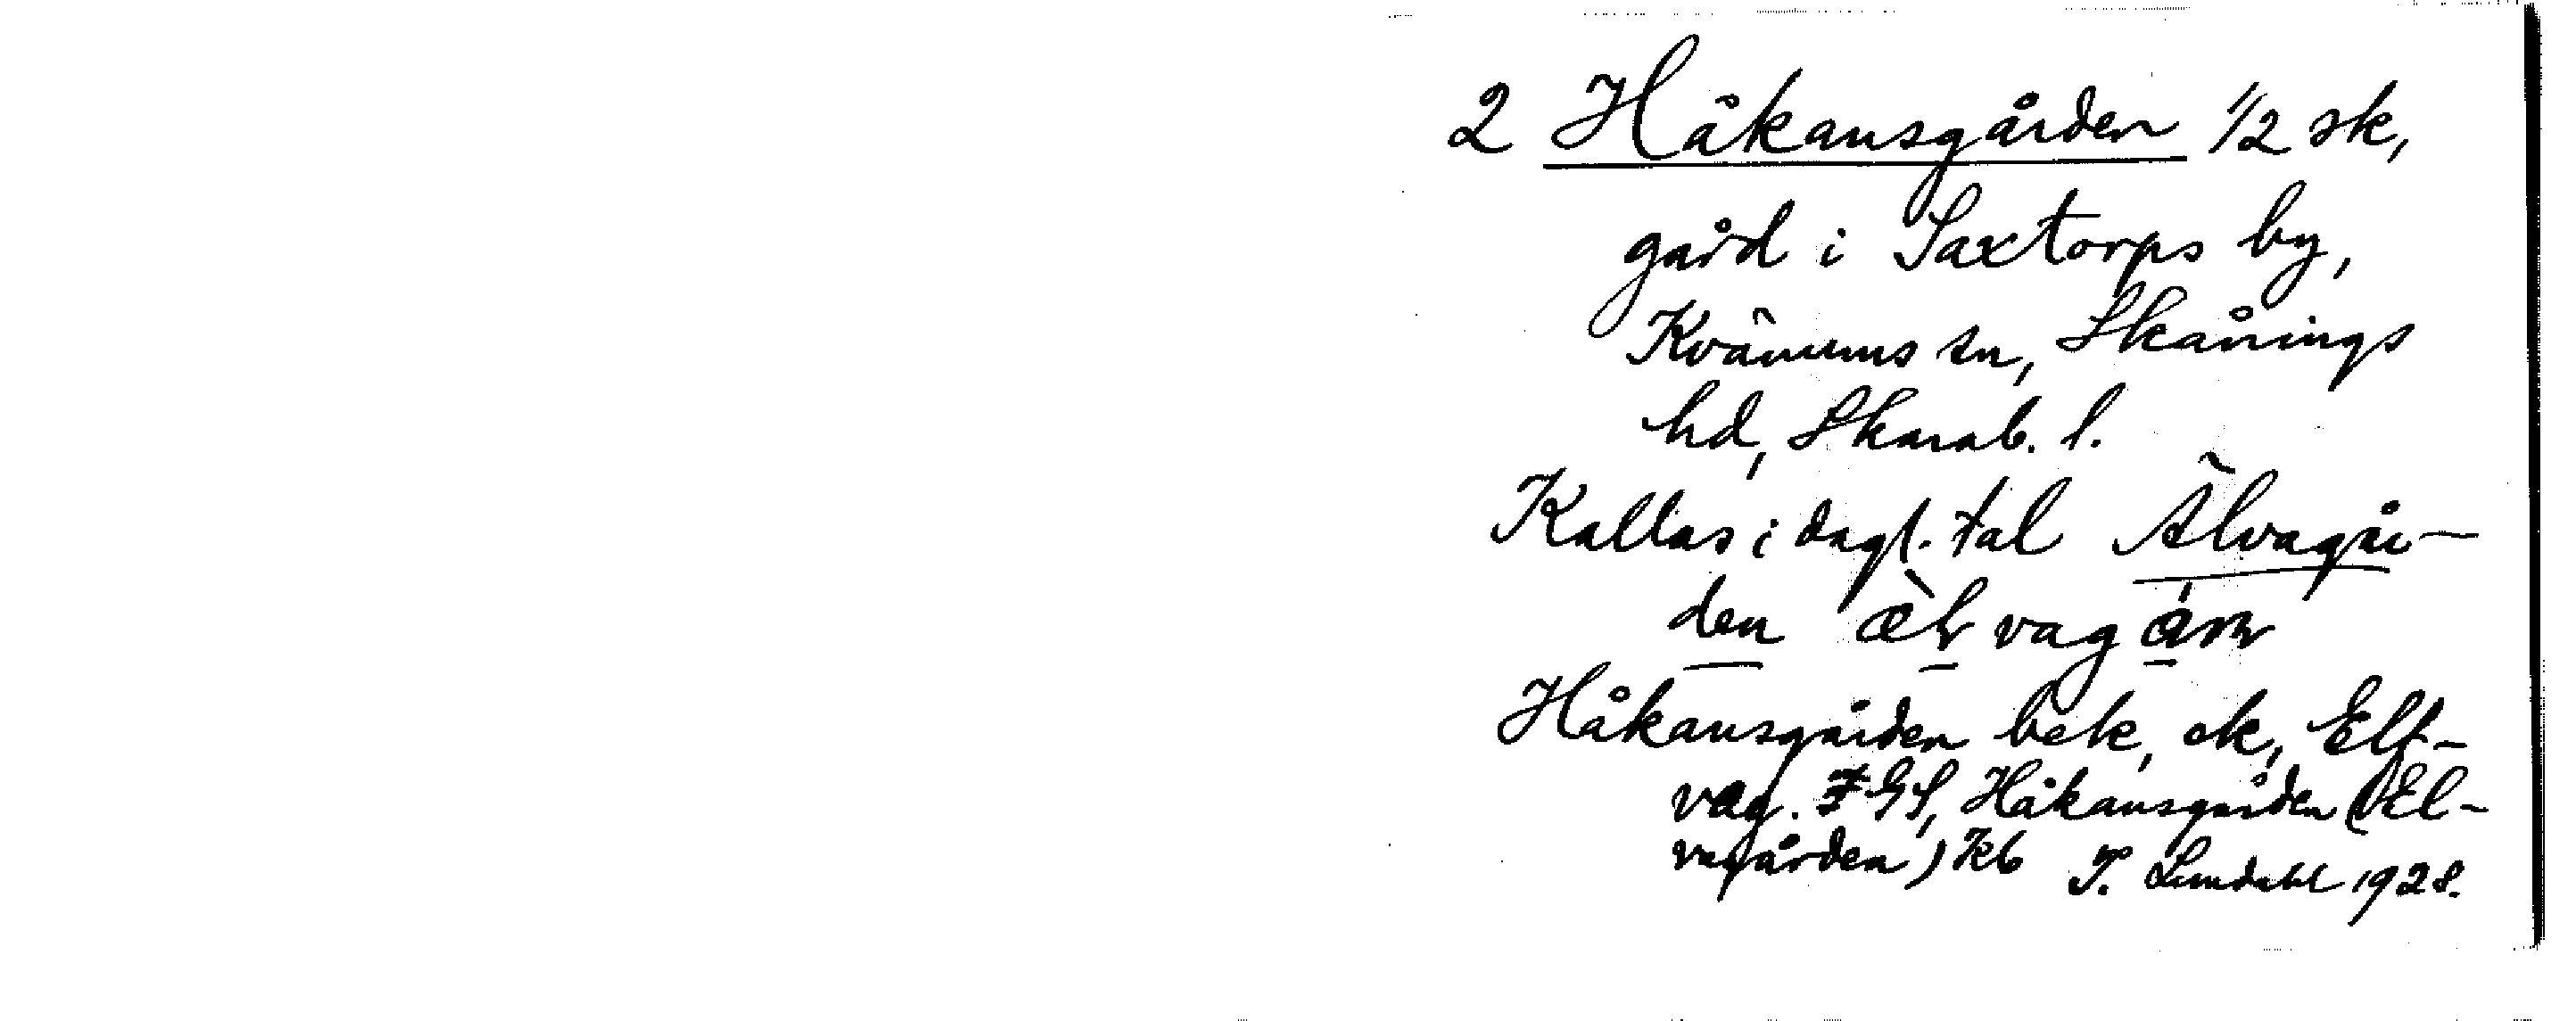 2 Håkansgården 1/2 sk,
gård i Saxtorps by,
Kvänums sn, Skånings
hd, Skarab. l.
Kallas i dagl. tal Älvagår-
den
Håkansgården bek, ek, Elf-
vag. JGS, Håkansgården (El-
vagården) Kb T. Lundahl 1928.